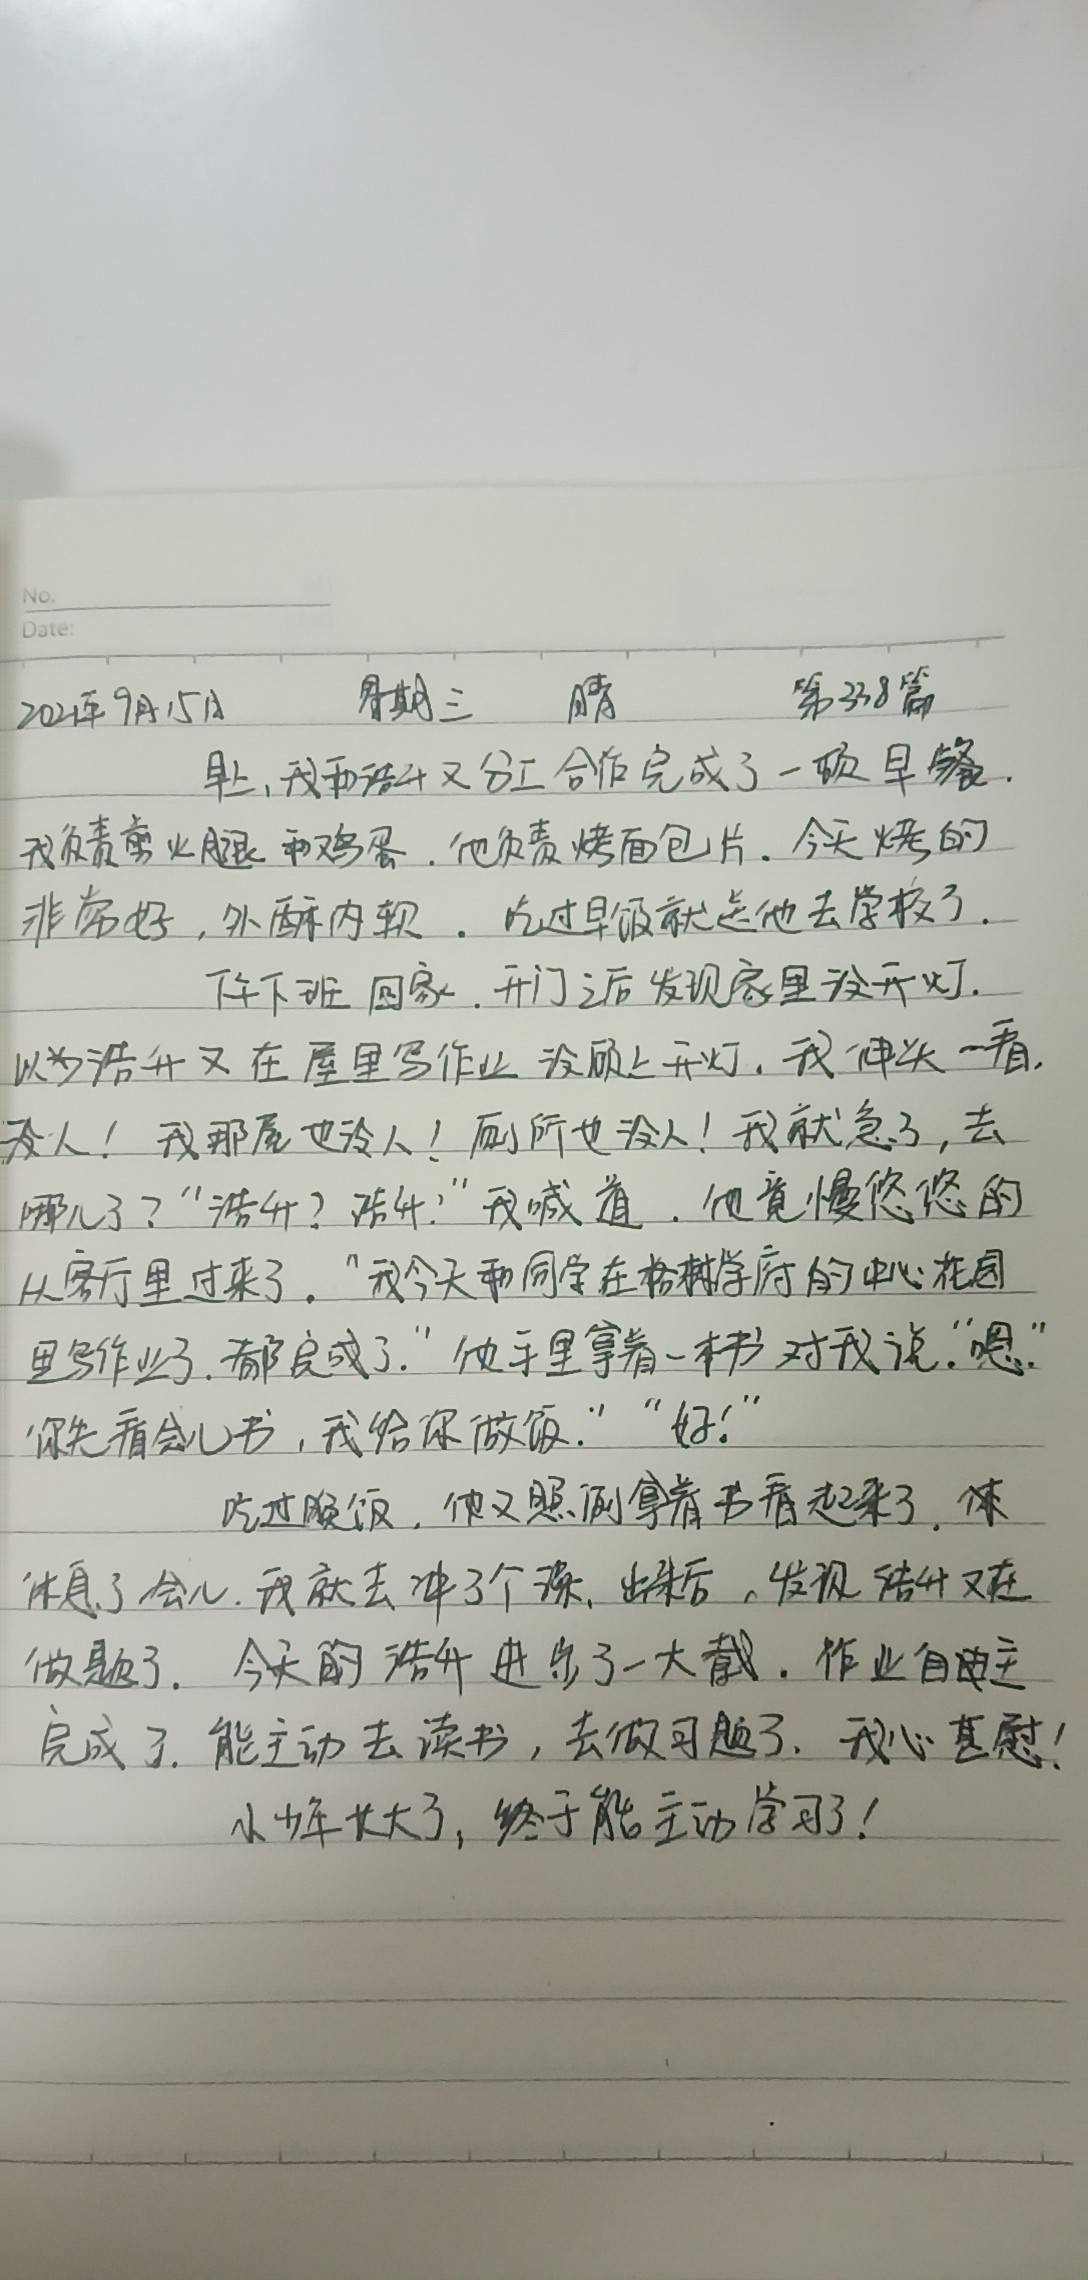 No.
Date:
2021年9月15日 星期三 晴 第338篇
早上,我和浩升又分工合作完成了一顿早餐.
我负责煎火腿和鸡蛋.他负责烤面包片.今天烤的
非常好,外酥内软.吃过早饭就送他去学校了.
下午下班回家.开门之后发现家里没开灯.
以为浩升又在屋里写作业没顾上开灯.我伸头一看.
没人!我那屋也没人!厕所也没人!我就急了,去
哪儿了?"浩升?浩升?"我喊道.他竟慢悠悠的
从客厅里过来了."我今天和同学在格树学府的中心花园
里写作业了.都完成了."他手里拿着一本书对我说."嗯."
你先看会儿书,我给你做饭.""好!"
吃过晚饭.他又照例拿着书看起来了.休
休息了会儿.我就去冲了个澡.出来后,发现浩升又在
做题了.今天的浩升进步了一大截.作业自由主
完成了.能主动去读书,去做习题了.我心甚慰!
小少年长大了,终于能主动学习了!